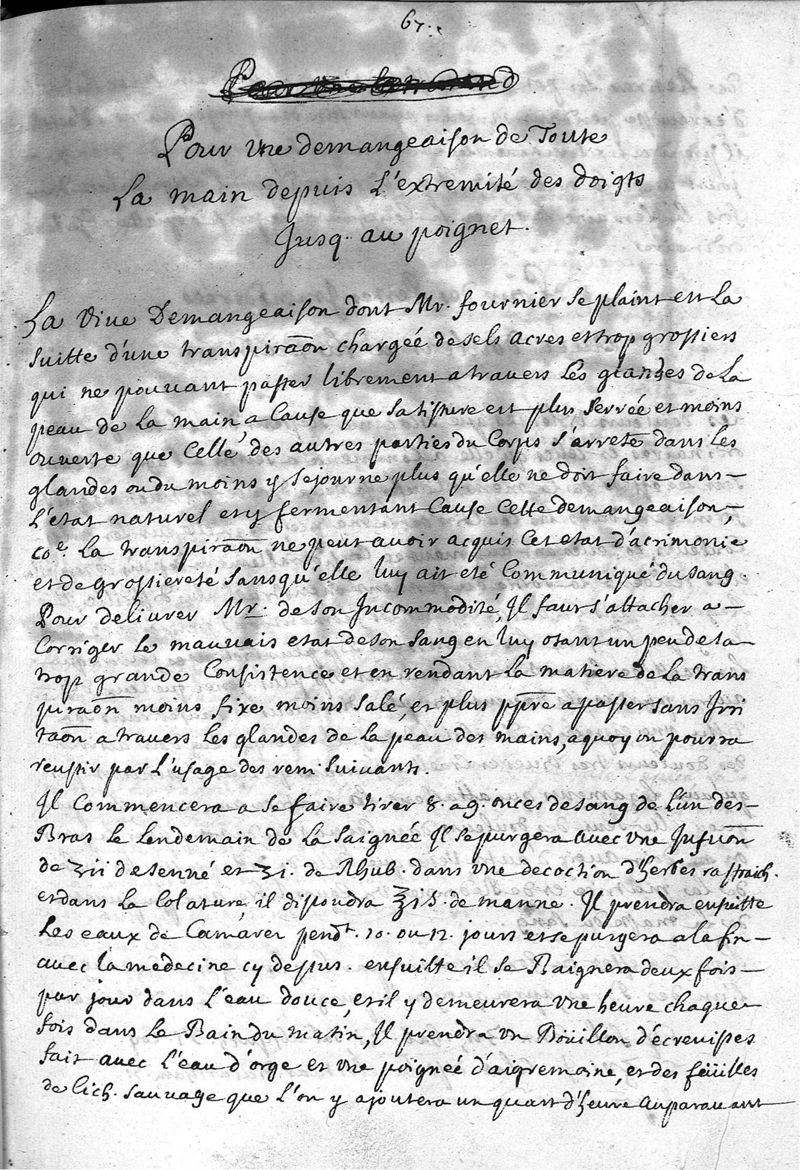 67.
Pour Une demangeaison de Toute
La main depuis L'extremité des doigts
Jusq. au poignet.
La Viue Demangeaison dont Mr. fournier se plaint est La
suitte d'une transpiraõn chargée de sels acres et trop grossiers
qui ne pouuant passer librement a trauers Les glandes de La
peau de La main a Cause que sa tissure est plus serrée et moins
ouuerte que Celle des autres parties du Corps s'arrete dans Les
glandes ou du moins y sejourne plus qu'elle ne doit faire dans
L'etat naturel et y fermentant Cause Cette demangeaison,
coe. La transpiraõn ne peut auoir acquis Cet etat d'acrimonie
et de grossiereté sans qu'elle luy ait eté Communiqué du sang.
Pour deliurer Mr. de son Jncommodité, Jl faut s'attacher a
Corriger le mauuais etat de son sang en luy otant un peu de sa
trop grande Consistence et en rendant La matiere de La trans
piraõn moins fixe moins salé, et plus ppre a passer sans Jrri
taõn a trauers Les glandes de La peau des mains, a quoy on pourra
reussir par L'usage des rem. suiuants.
Jl Commencera a se faire tirer 8. a 9. onces de sang de L'un des
Bras Le Lendemain de La saignée Jl se purgera auec Une Jnfusiõn
de ʒii de senné et ʒi. de Rhub. dans une decoction d'herbes rafraich.
et dans La Colature il dissoudra ℥i ß. de manne. Jl prendra ensuitte
Les eaux de Camarez pendt. 10. ou 12. jours et se purgera a la fin
auec la medecine cy dessus. ensuitte il se Baignera deux fois
par jour dans L'eau douce, et il y demeurera Une heure chaque
fois dans Le Bain du matin, Jl prendra Un Boüillon d'écreuisses
fait auec L'eau d'orge et Une poignée d'aigremoine, et des feüilles
de Cich. sauuage que L'on y ajoutera un quart d'heure auparauant